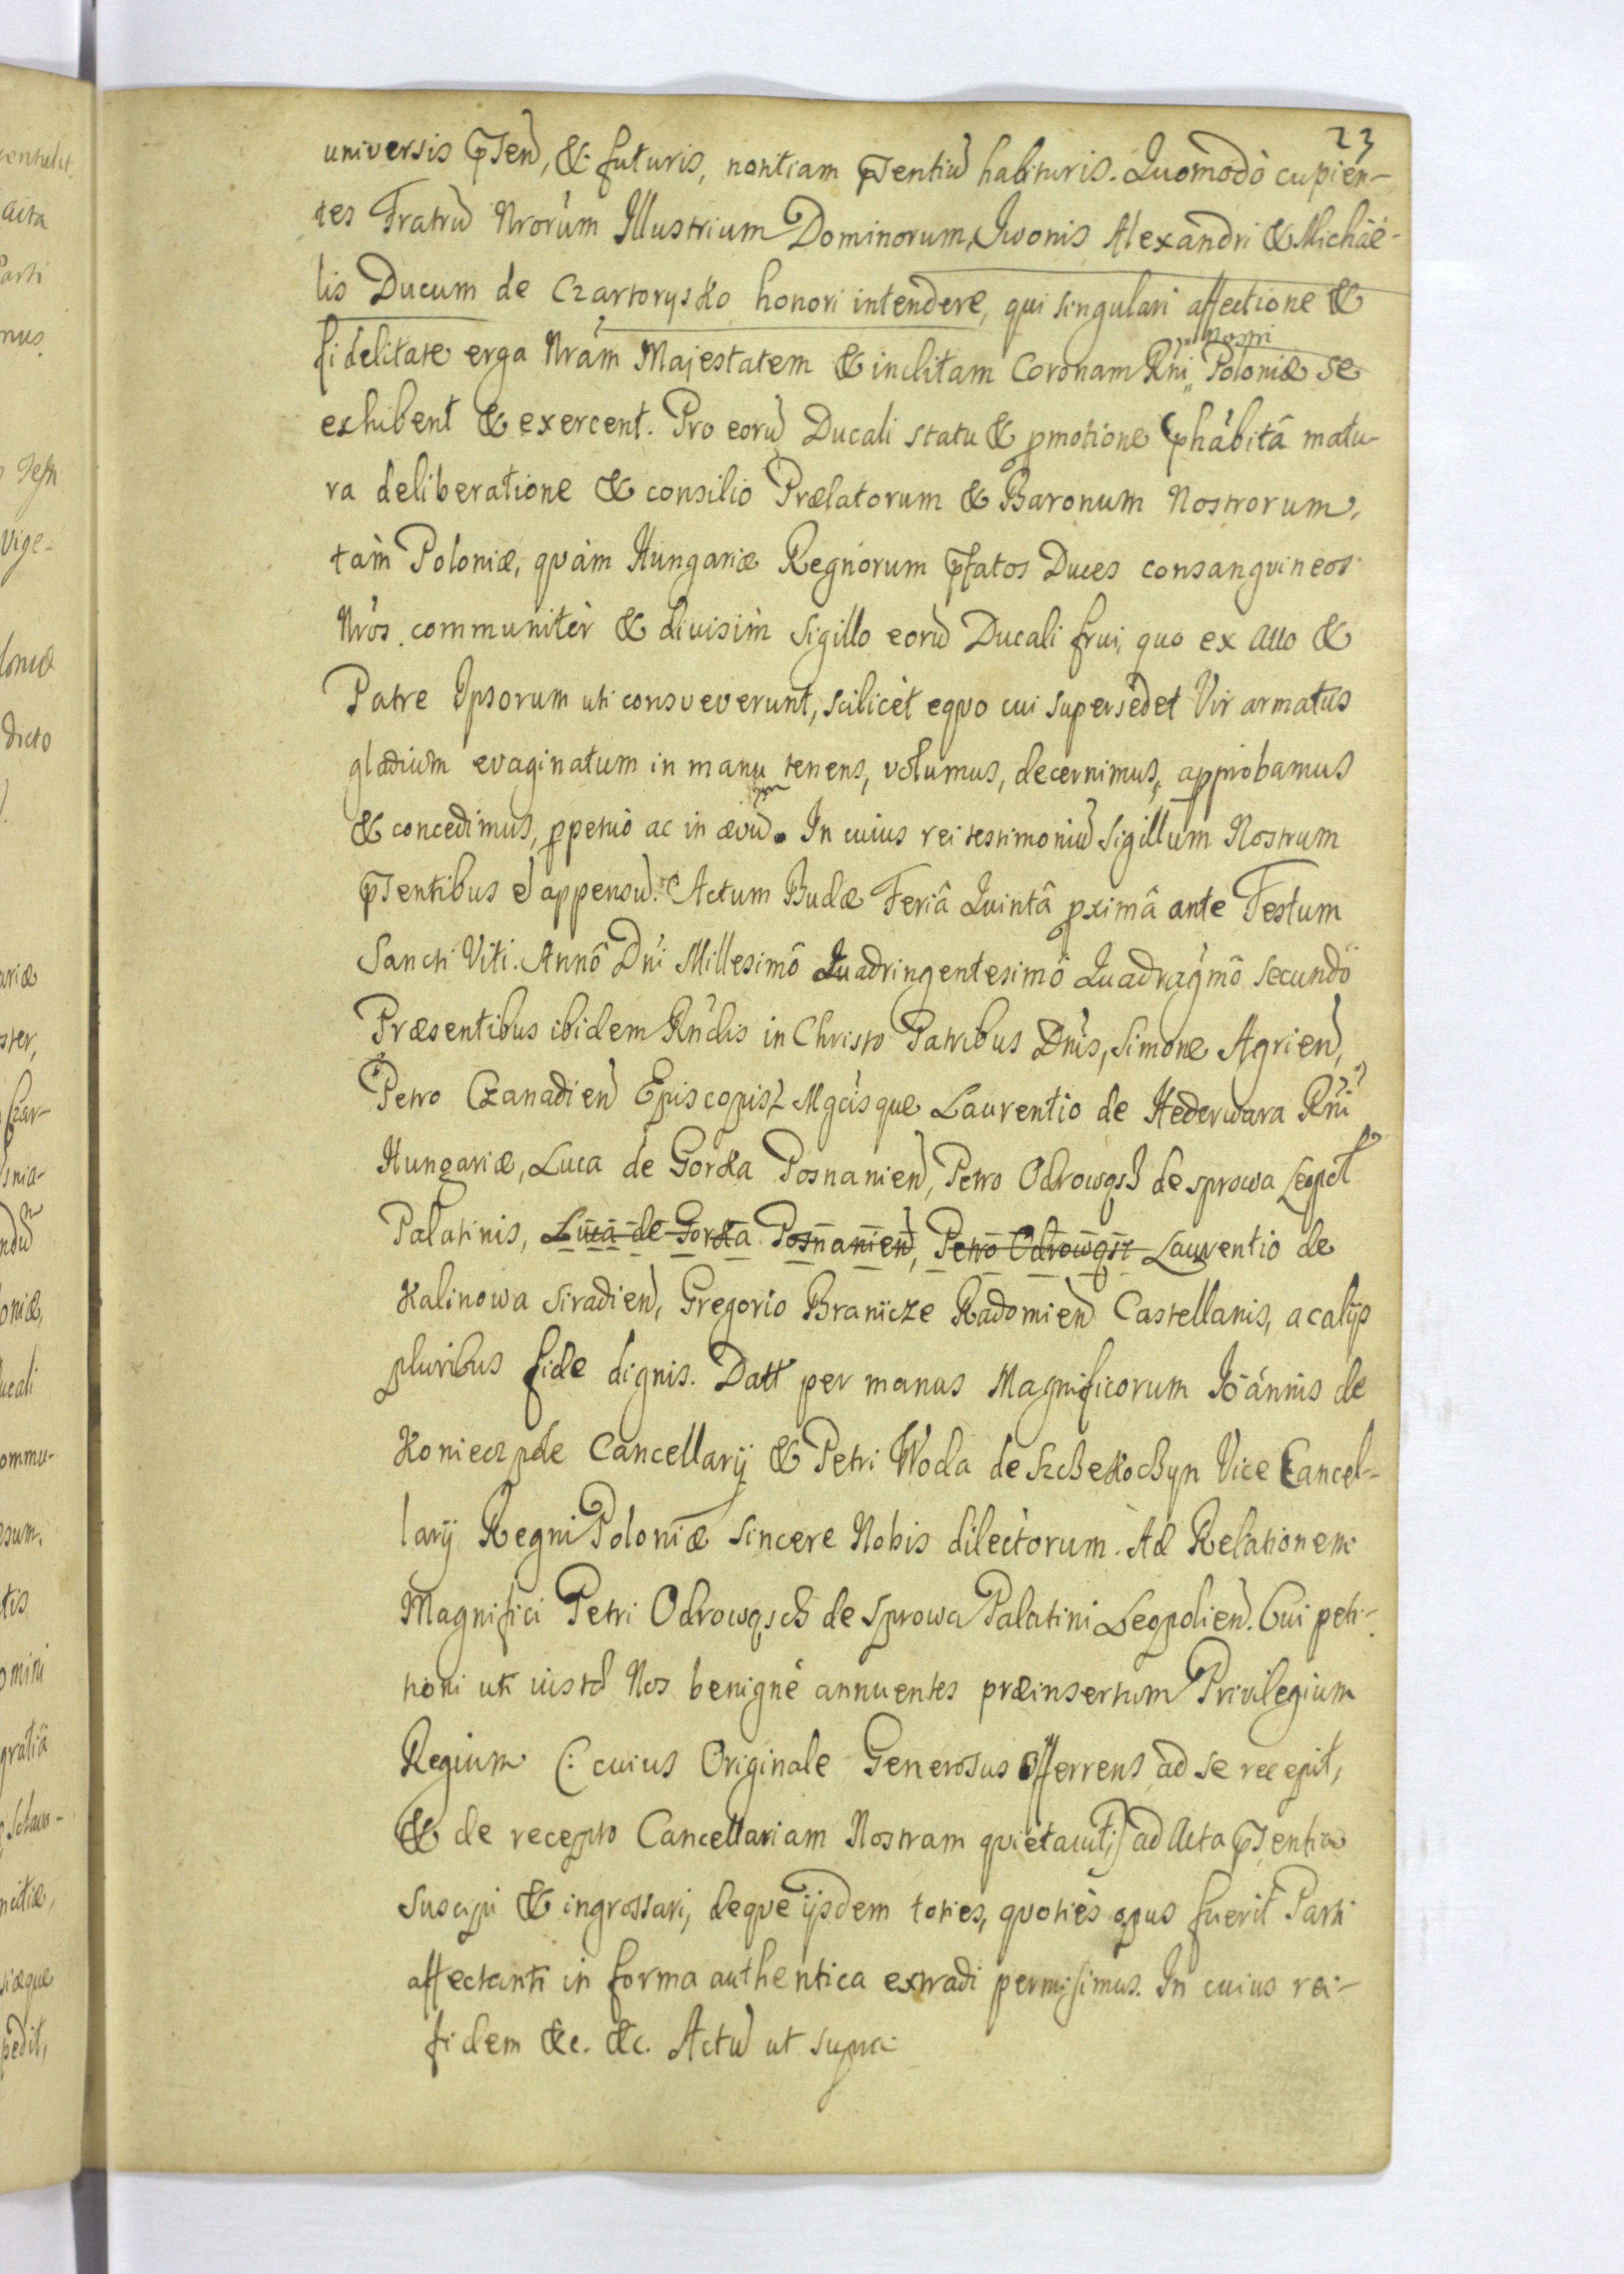 23
universis p̄sen̄, & futuris, notitiam p̄sentiu̇ habituris. Quomodò cupien-
tes Fratrū Nrorum Illustrium Dominorum, Iwonis Alexandri & Michaë-
lis Ducum de Czartorysko honori intendere, qui singulari affectione &
fidelitate erga Nram Majestatem & inclitam Coronam Rni „Nostri Poloniæ se
exhibent & exercent. Pro eorū Ducali statu & pmotione p̄habitâ matu-
ra deliberatione & consilio Prælatorum & Baronum Nostrorum,
tàm Poloniæ, quàm Hungariæ Regnorum p̄fatos Duces consangvineos
Nros. communitèr & divisim Sigillo eorū Ducali frui, quo ex Auo &
Patre Ipsorum uti consveverunt, scilicèt eqvo cui supersedet Vir armatus
gladium evaginatum in manu tenens, volumus, decernimus, approbamus
& concedimus, ppetuò ac in ævū. In cuius rei testimoniū Sigillum Nostrum
p̄sentibus ē appensū. Actum Budæ Feriâ Quintâ pximâ ante Festum
Sancti Viti. Annô Dni Millesimô Quadringentesimô Quadragmô secundô
Præsentibus ibidem Rndis in Christo Patribus Dnis, Simone Agrien̄,
Petro Czanadien̄ Episcopis, Mgcisque Laurentio de Hederwara Rni
Hungariæ, Luca de Gorka Posnanien̄, Petro Odrowąsd de sprowa Leopcl
Palatinis, Luca de Gorka Posnanien̄, Petro Odrowąsz Laurentio de
Kalinowa Siradien̄, Gregorio Branicze Radomien̄ Castellanis, ac alijs
pluribus fide dignis. Datt per manus Magnificorum Ioannis de
Konieczpde Cancellarij & Petri Woda de Szchekochyn Vice Cancel-
larij Regni Poloniæ sincere Nobis dilectorum. Ad Relationem
Magnifici Petri Odrowąsch de Sprowa Palatini Leopolien̄. Cui peti-
tioni uti iustæ Nos benignè annuentes præinsertum Privilegium
Regium (: cuius Originale Generosus Offerrens ad se recepit,
& de recepto Cancellariam Nostram quietavit:) ad Acta p̄sentia
suscipi & ingrossari, deque ijsdem toties, quotiès opus fuerit Parti
affectanti in forma authentica extradi permisimus. In cuius rei
fidem &c. &c. Actū ut supra